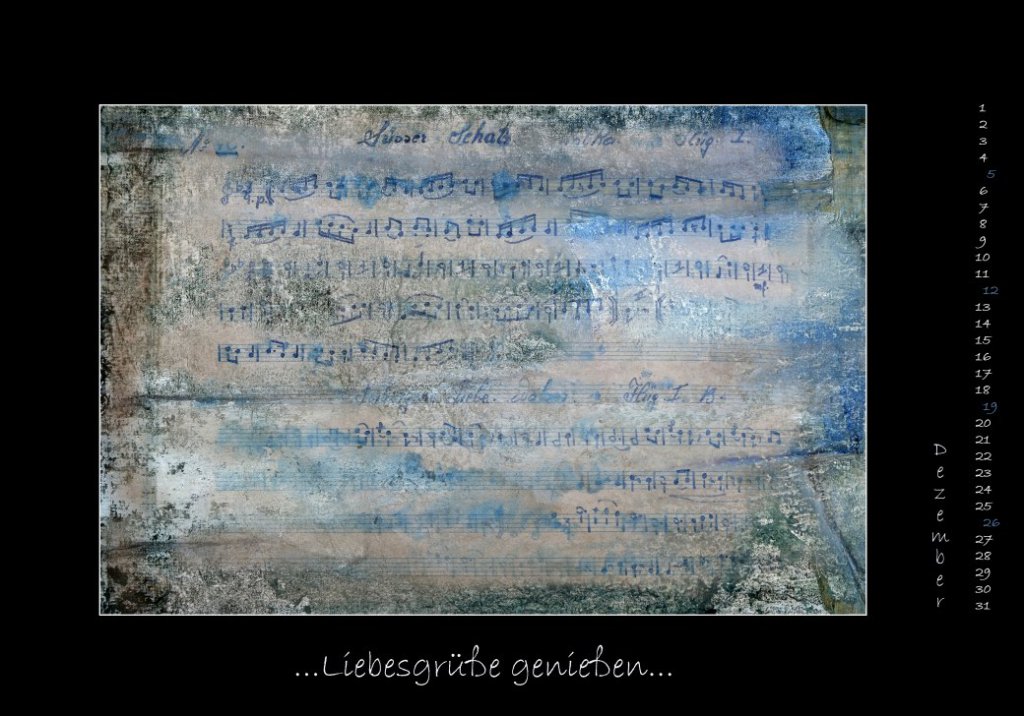 Süsser Schatz Polka Flüg. I.
Liebe Walzer Flüg I. B.
...Liebesgrüße genießen...
Dezember
1
2
3
4
5
6
7
8
9
10
11
12
13
14
15
16
17
18
19
20
21
22
23
24
25
26
27
28
29
30
31